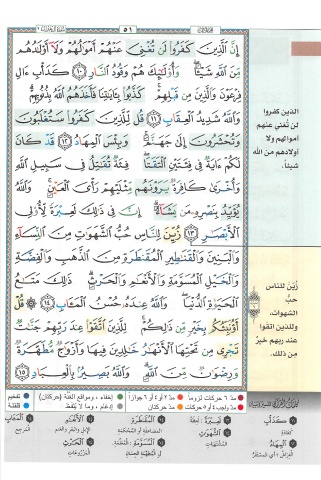 ٥١
إِنَّ الَّذِينَ كَفَرُوا لَن تُغْنِيَ عَنْهُمْ أَمْوَالُهُمْ وَلَا أَوْلَادُهُم
مِّنَ اللَّهِ شَيْئًا وَأُولَئِكَ هُمْ وَقُودُ النَّارِ ١٠ كَدَأْبِ آلِ
فِرْعَوْنَ وَالَّذِينَ مِن قَبْلِهِمْ كَذَّبُوا بِآيَاتِنَا فَأَخَذَهُمُ اللَّهُ بِذُنُوبِهِمْ
وَاللَّهُ شَدِيدُ الْعِقَابِ ١١ قُل لِّلَّذِينَ كَفَرُوا سَتُغْلَبُونَ
وَتُحْشَرُونَ إِلَى جَهَنَّمَ وَبِئْسَ الْمِهَادُ ١٢ قَدْ كَانَ
لَكُمْ آيَةٌ فِي فِئَتَيْنِ الْتَقَتَا فِئَةٌ تُقَاتِلُ فِي سَبِيلِ اللَّهِ
وَأُخْرَى كَافِرَةٌ يَرَوْنَهُم مِّثْلَيْهِمْ رَأْيَ الْعَيْنِ وَاللَّهُ
يُؤَيِّدُ بِنَصْرِهِ مَن يَشَاءُ إِنَّ فِي ذَلِكَ لَعِبْرَةً لِّأُولِي
الْأَبْصَارِ ١٣ زُيِّنَ لِلنَّاسِ حُبُّ الشَّهَوَاتِ مِنَ النِّسَاءِ
وَالْبَنِينَ وَالْقَنَاطِيرِ الْمُقَنطَرَةِ مِنَ الذَّهَبِ وَالْفِضَّةِ
وَالْخَيْلِ الْمُسَوَّمَةِ وَالْأَنْعَامِ وَالْحَرْثِ ذَلِكَ مَتَاعُ
الْحَيَاةِ الدُّنْيَا وَاللَّهُ عِندَهُ حُسْنُ الْمَآبِ ١٤ قُلْ
أَؤُنَبِّئُكُم بِخَيْرٍ مِّن ذَلِكُمْ لِلَّذِينَ اتَّقَوْا عِندَ رَبِّهِمْ جَنَّاتٌ
تَجْرِي مِن تَحْتِهَا الْأَنْهَارُ خَالِدِينَ فِيهَا وَأَزْوَاجٌ مُّطَهَّرَةٌ
وَرِضْوَانٌ مِّنَ اللَّهِ وَاللَّهُ بَصِيرٌ بِالْعِبَادِ ١٥
الذين كفروا
لن تغني عنهم
أموالهم ولا
أولادهم من الله
شيئاً.
زُيّن للناس
حبُّ
الشهوات،
وللذين اتقوا
عند ربهم خيرٌ
من ذلك.
مدّ ٦ حركات لزوماً
مدّ ٢ أو ٤ أو ٦ جوازاً
إخفاء، ومواقع الغنّة (حركتان)
تفخيم
مدّ حركتان
إدغام، وما لا يُلفظ
قلقلة